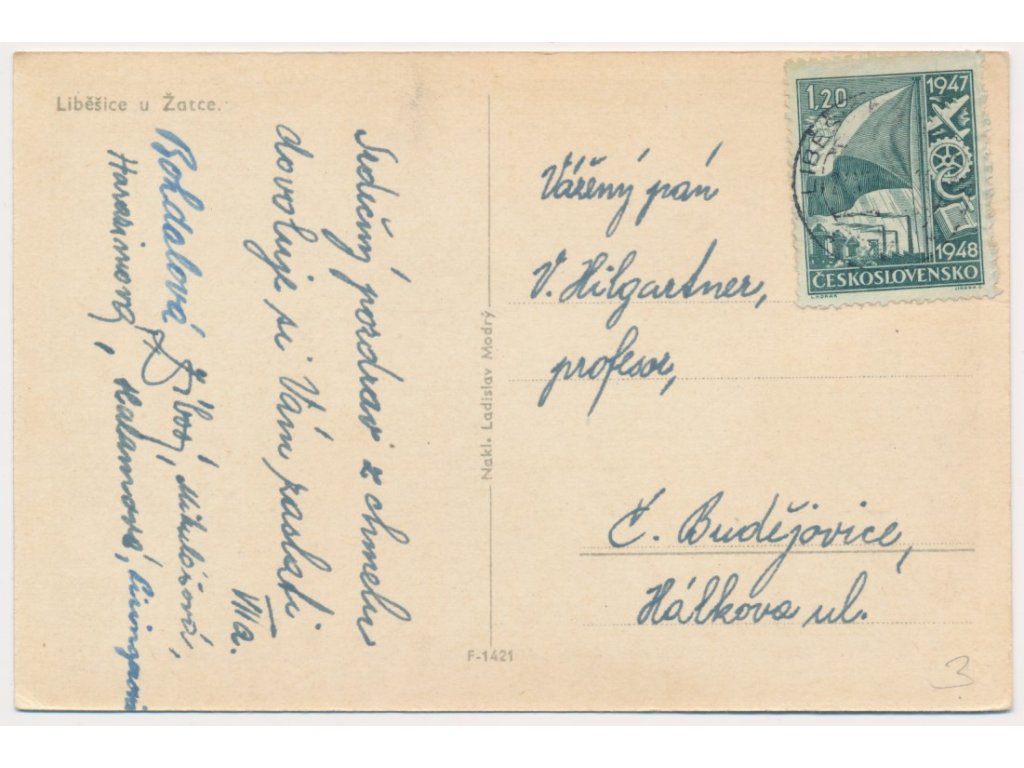 Liběšice u Žatce.
Srdečný pozdrav z chmelu
dovoluje si Vám zaslati
VIII a.
Bohdalová
Mikulášová,
Kalamová,
Nakl. Ladislav Modrý
F-1421
1,20
1947
1948
ČESKOSLOVENSKO
Vážený pán
V. Hilgartner,
profesor,
Č. Budějovice,
Hálkova ul.
3